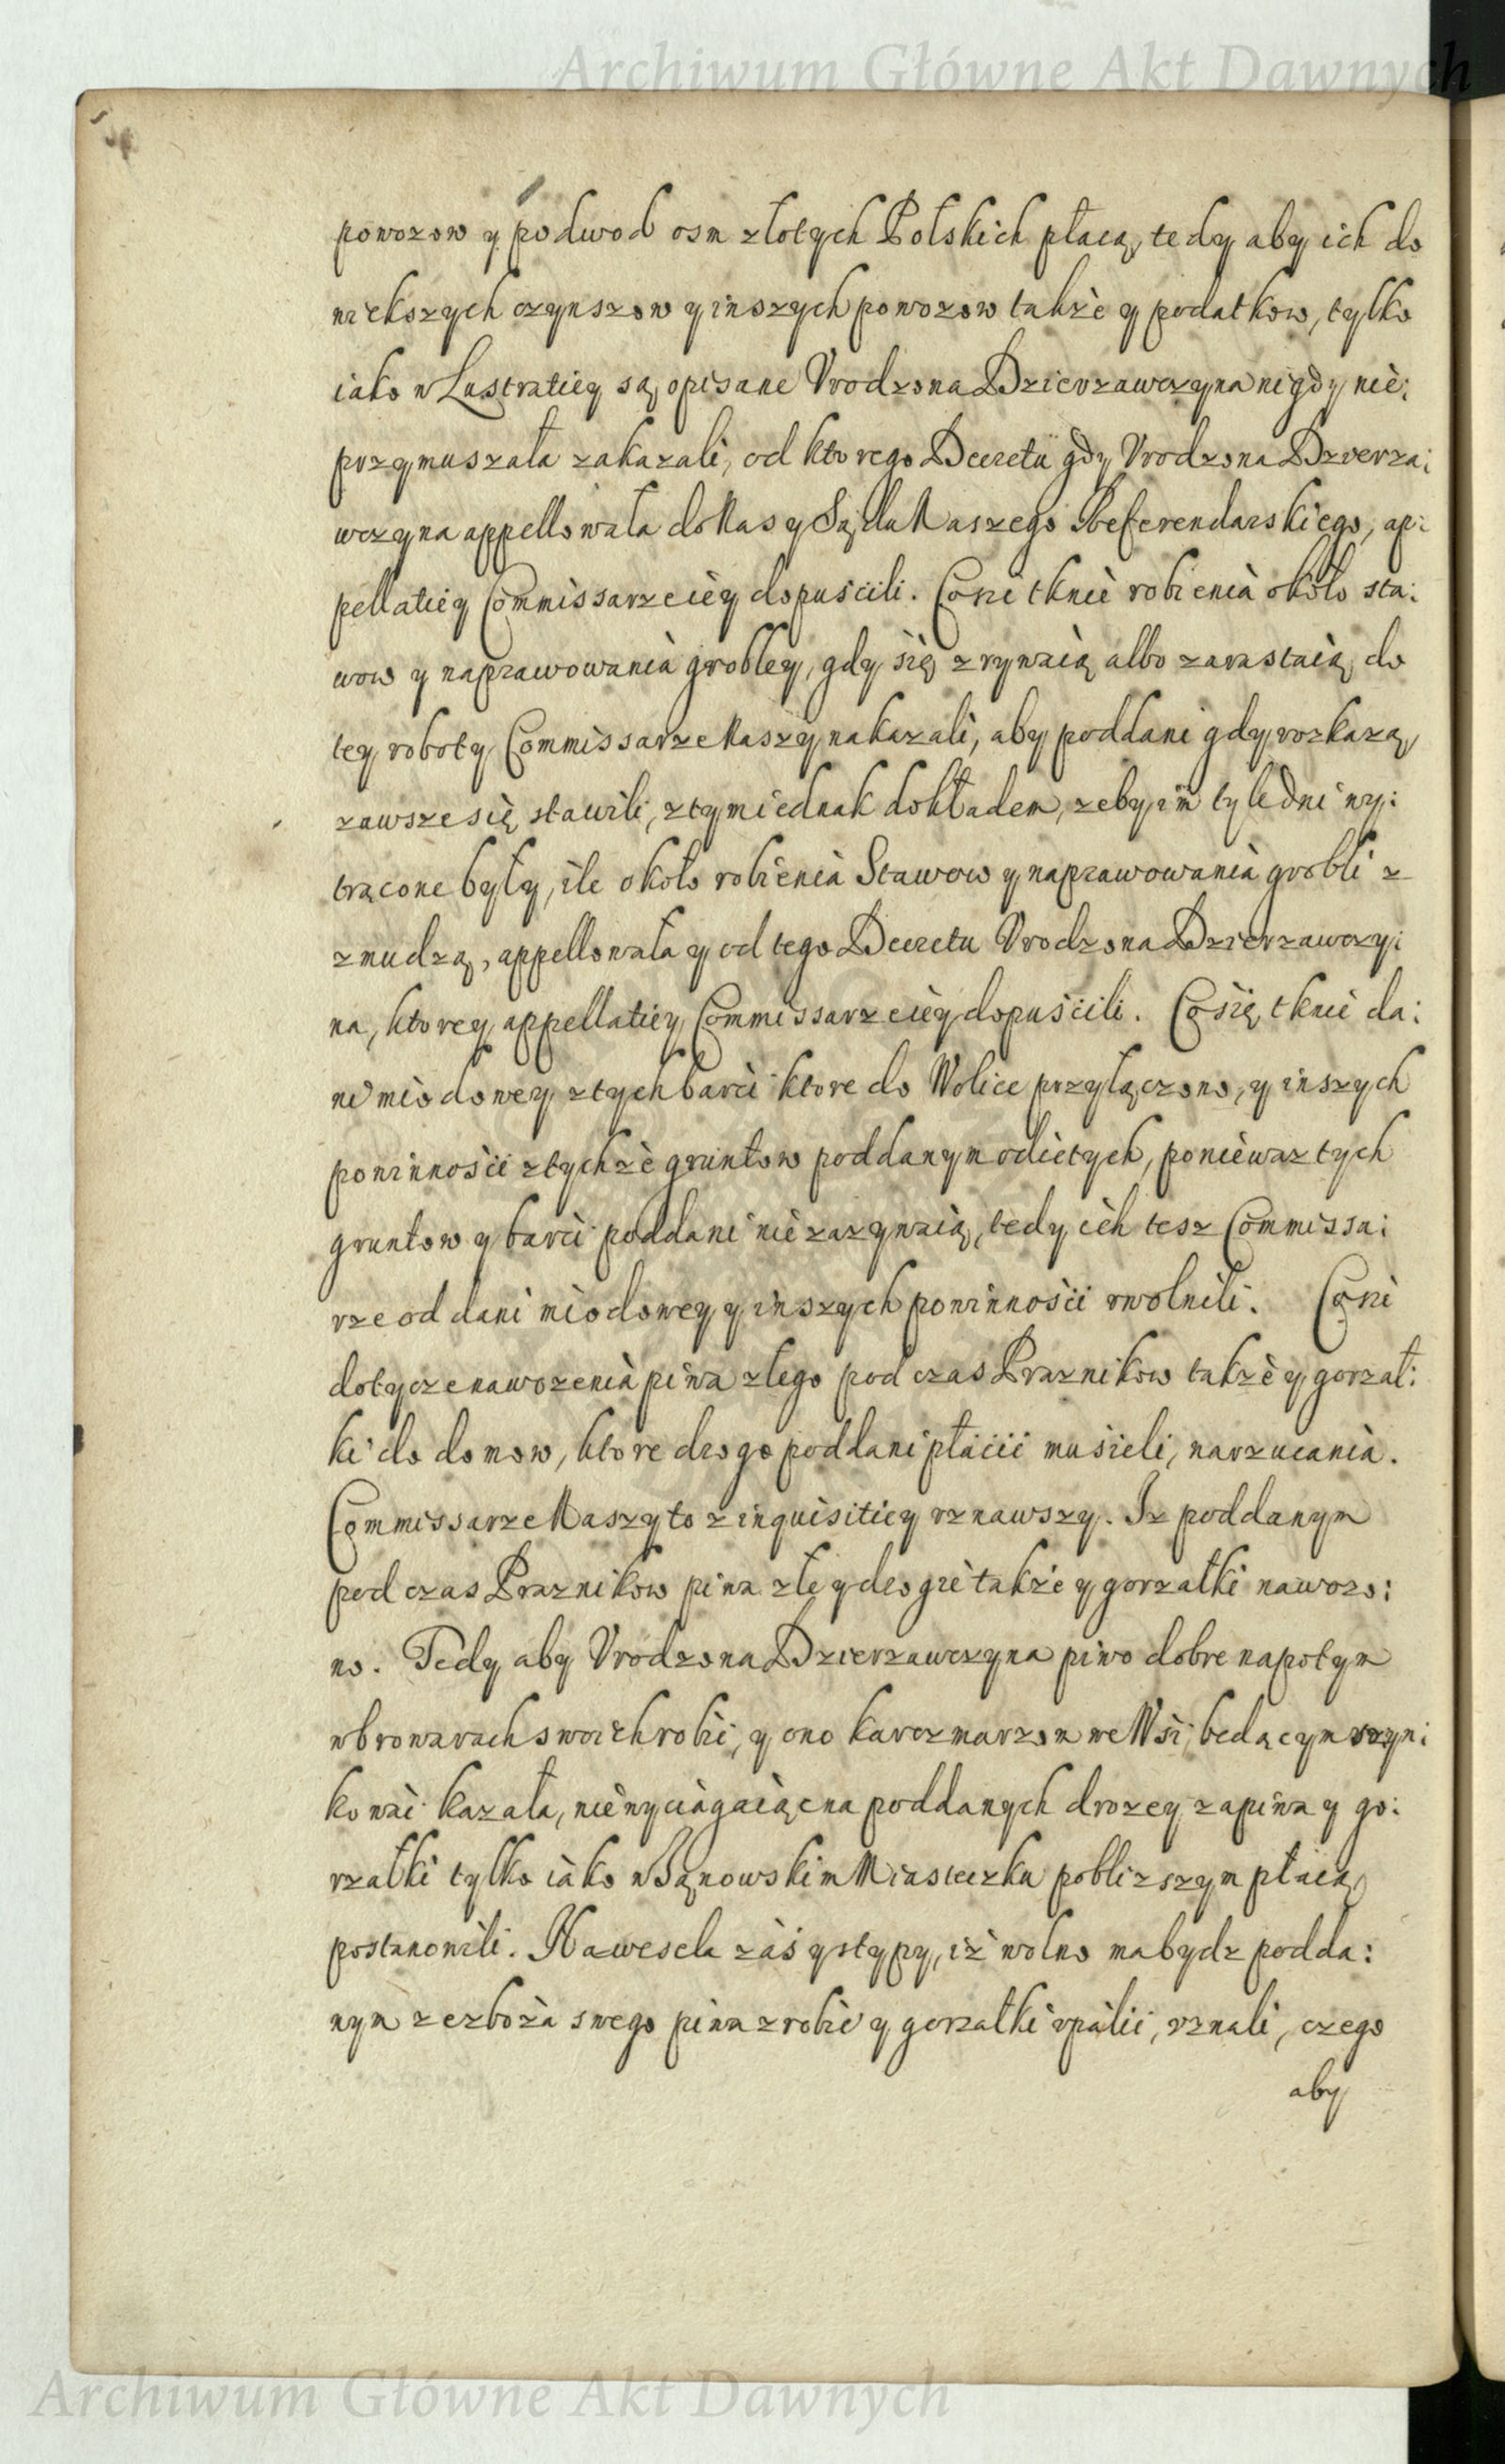 Archiwum Główne Akt Dawnych
powozow y podwod osm złotych Polskich płacą, tedy aby ich do
wiekszych czynszow y inszych powozow także y podatkow, tylko
iako w Lustratiey są opisane Vrodzona Dzierzawczyna nigdy nie:
przymuszała zakazali, od ktorego Decretu gdy Vrodzona Dzierza:
wczyna appellowała do Nas y Sądu Naszego Referendarskiego, ap:
pellatiey Commissarze iey dopuscili. Co się tknie robienia około sta:
wow y naprawowania grobley, gdy się zrywaią albo zarastaią do
tey roboty Commissarze Naszy nakazali, aby poddani gdy roskazą,
zawsze się stawili, z tym iednak dokładem, zeby im tyle dni wy:
trącone były, ile około robienia Stawow y naprawowania grobli z
zmudzą, appellowała y od tego Decretu Vrodzona Dzierzawczy:
na, ktorey appellatiey Commissarze iey dopuscili. Co się tknie da:
ni miodowey z tych barci ktore do Wolice przyłączono, y inszych
powinnosci z tychże gruntow poddanym odietych, poniewaz tych
gruntow y barci poddani nie zazywaią, tedy ich tesz Commissa:
rze od dani miodowey y inszych powinnosci vwolnili. Co się
dotycze nawozenia piwa złego pod czas Praznikow także y gorzał:
ki do domow, ktore drogo poddani płacić musieli, narzucania.
Commissarze Naszy to z inquisitiey vznawszy. Iz poddanym
pod czas Praznikow piwa złe y drogie także y gorzałki nawozo:
no. Tedy aby Vrodzona Dzierzawczyna piwo dobre napotym
w browarach swoich robić, y ono karczmarzom we Wsi będącym szyn:
kować kazała, nie wyciągaiąc na poddanych drozey za piwa y go:
rzałki tylko iako w Sanowskim Miasteczku pobliszszym płacą,
postanowili. Na wesela zaś y stypy, iż wolno ma bydz podda:
nym ze zboża swego piwa zrobić y gorzałki vpalić, vznali, czego
aby
Archiwum Główne Akt Dawnych